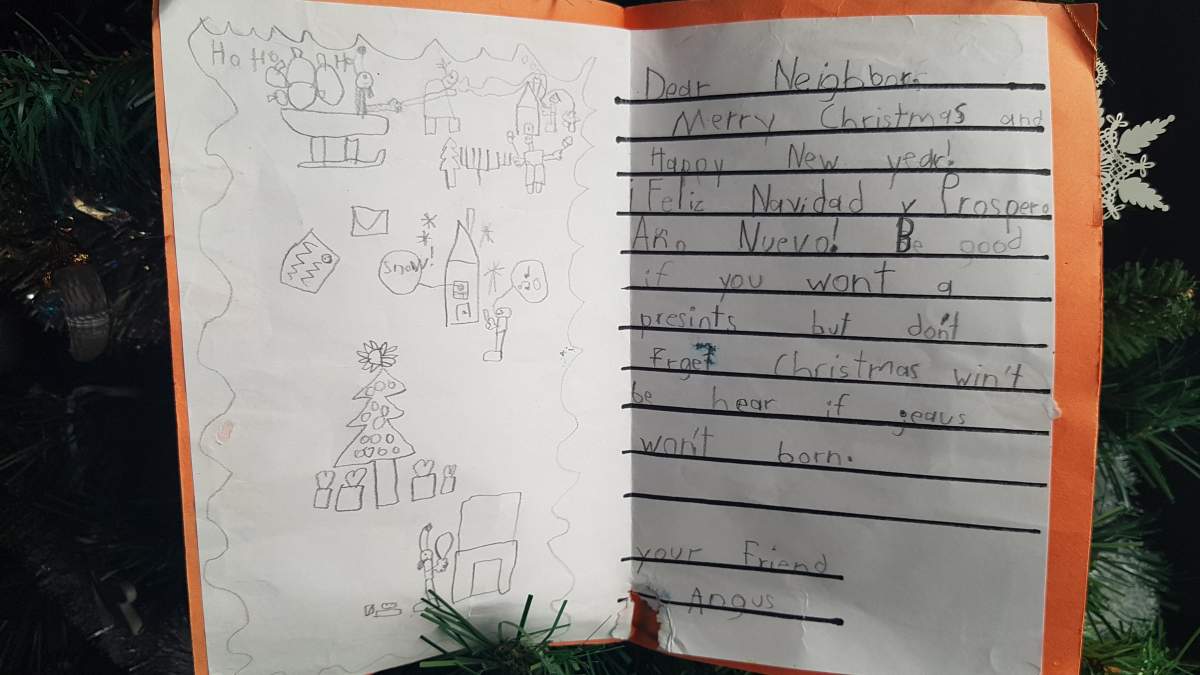 Ho Ho Ho
snowy!
Dear Neighbor,
Merry Christmas and
Happy New year!
¡Feliz Navidad y Prospero
Año Nuevo! Be good
if you wont a
presints but don't
Frget Christmas win't
be hear if jeaus
won't born.
your Friend
Angus